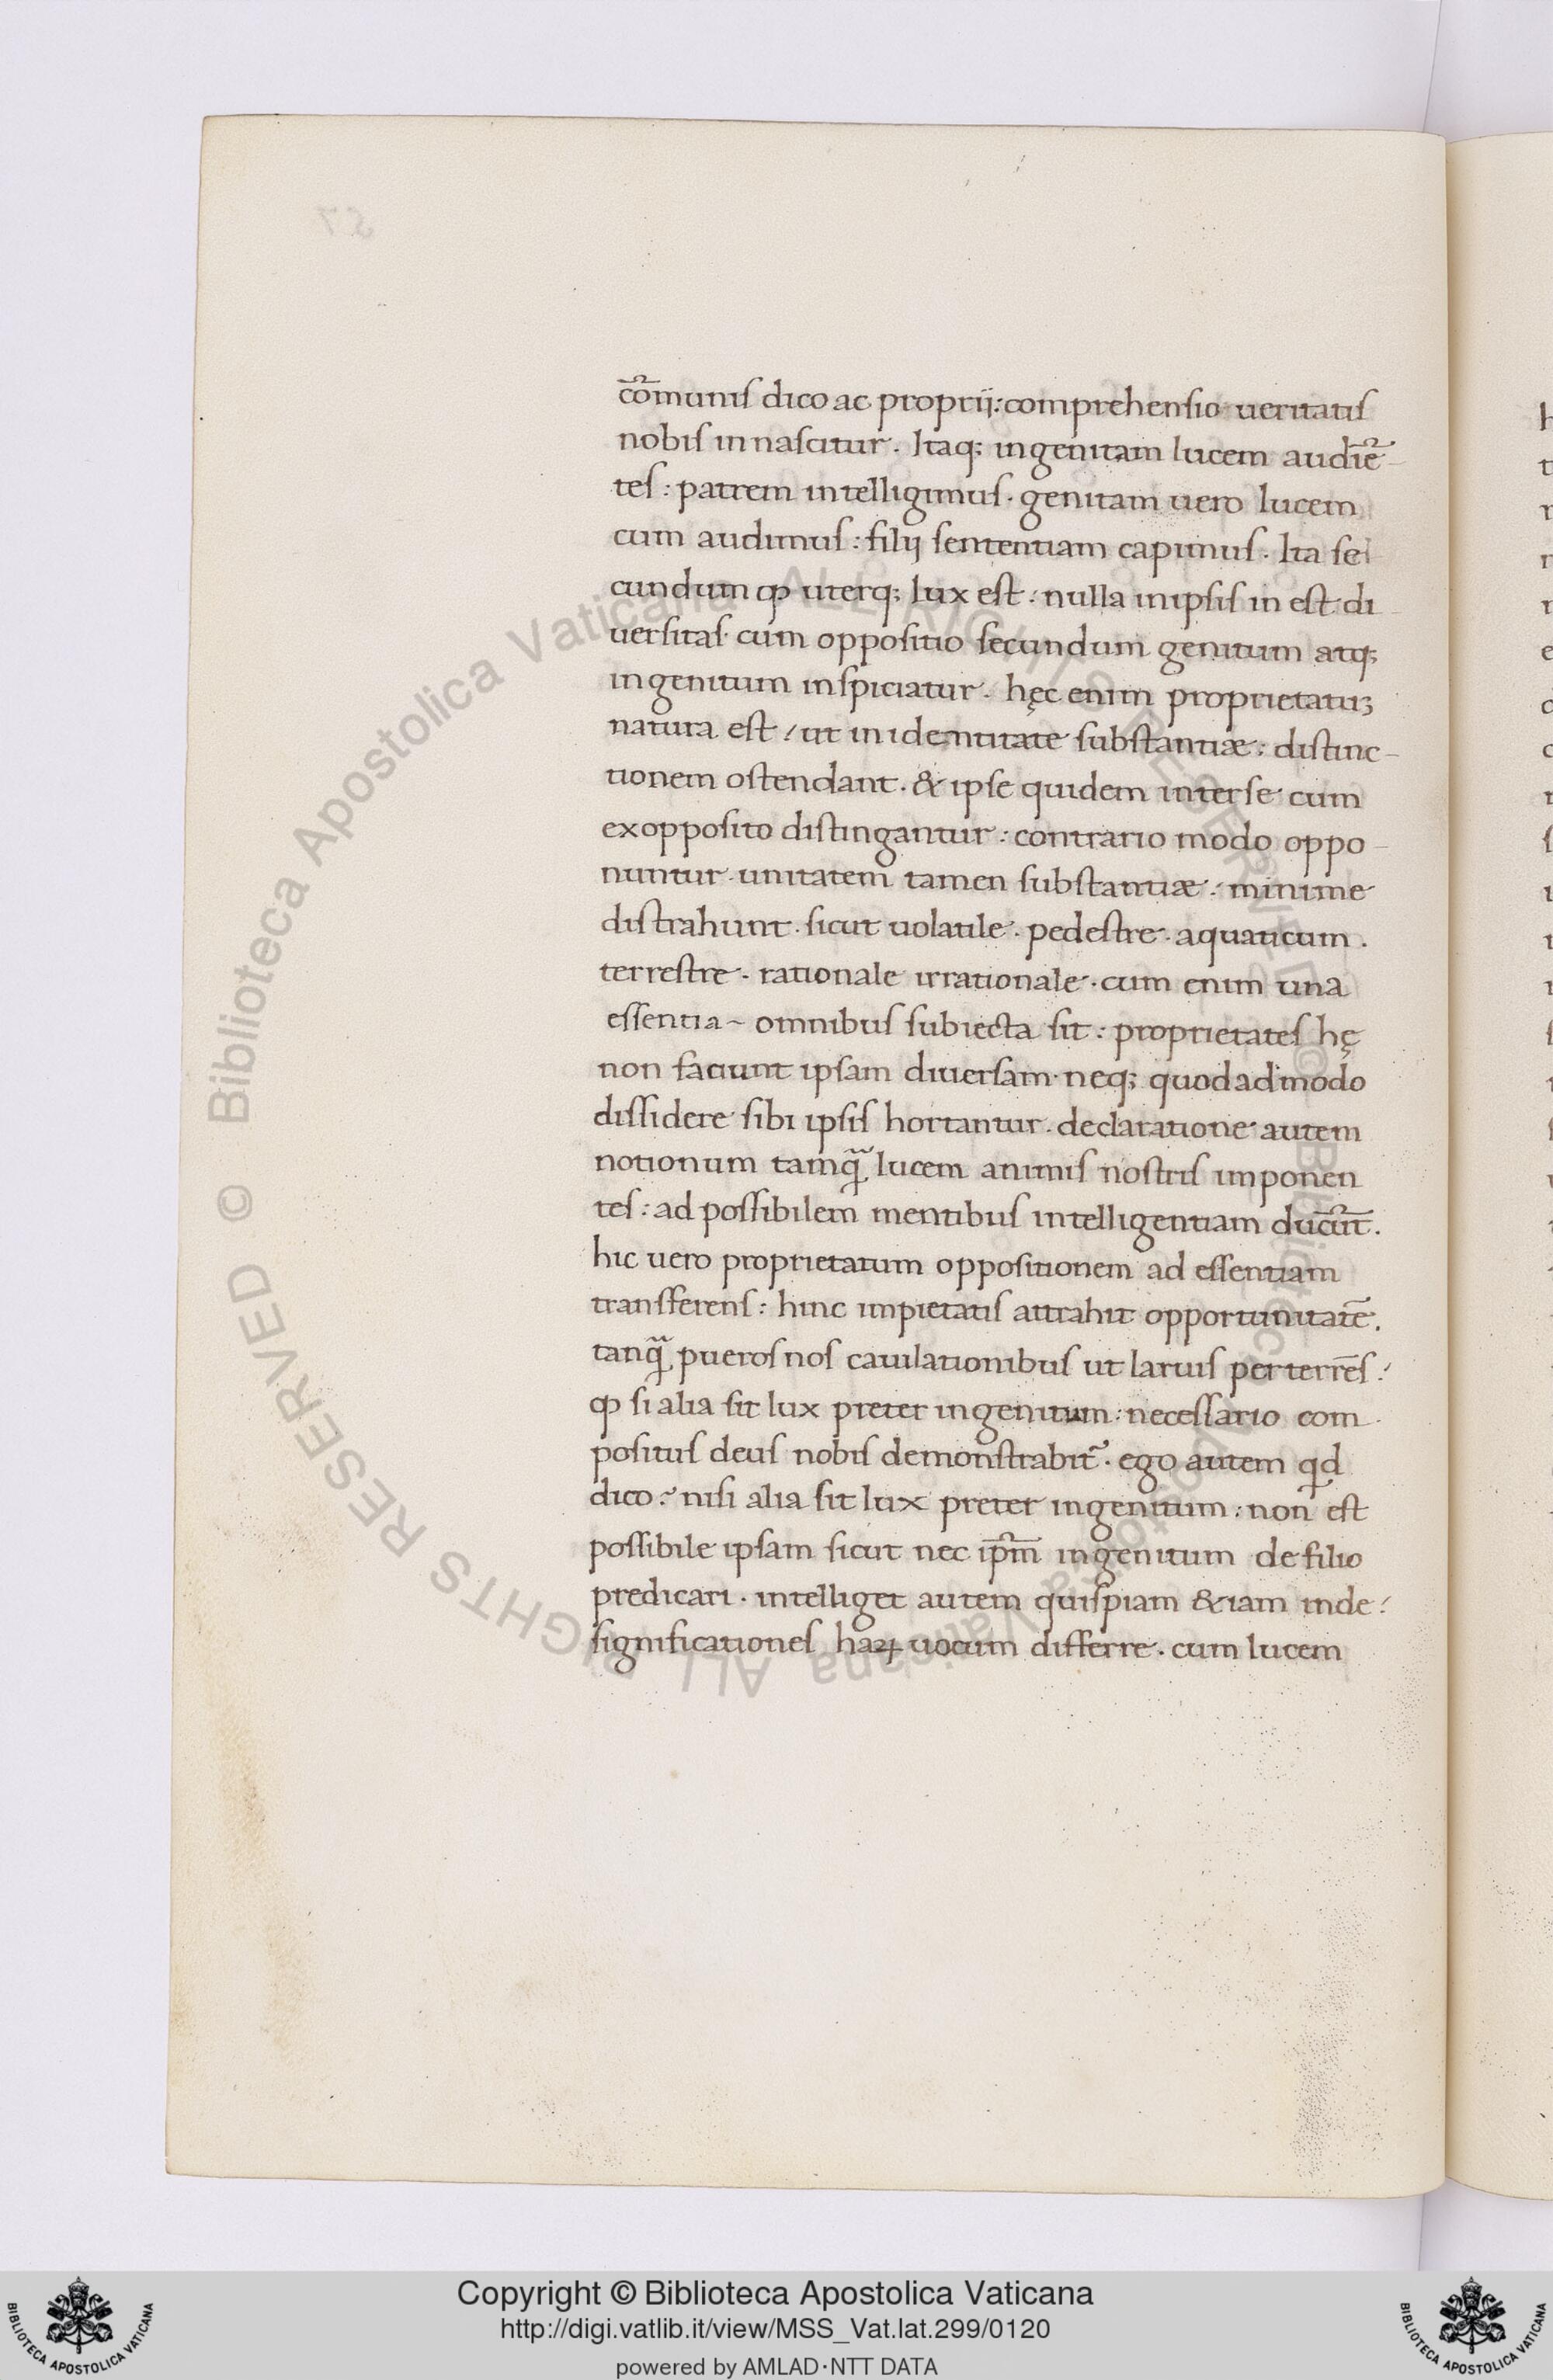 cõmunis dico ac proprij: comprehensio ueritatis
nobis innascitur. Itaq; ingenitam lucem audiẽ-
tes: patrem intelligimus. genitam uero lucem
cum audimus: filij sententiam capimus. Ita se
cundum ꝙ uterq; lux est: nulla in ipsis in est di
uersitas. cum oppositio secundum genitum atq;
ingenitum inspiciatur. hęc enim proprietatuꝫ
natura est / ut in identitate substantiæ: distinc-
tionem ostendant. & ipse quidem inter se cum
ex opposito distingantur: contrario modo oppo-
nuntur. unitatem tamen substantiæ: minime
distrahunt. sicut uolatile. pedestre. aquaticum.
terrestre. rationale irrationale. cum enim una
essentia~ omnibus subiecta sit: proprietates hę
non faciunt ipsam diuersam. neq; quodadmodo
dissidere sibi ipsis hortantur. declaratione autem
notionum tamq̃ lucem animis nostris imponen
tes: ad possibilem mentibus intelligentiam ducũt.
hic uero proprietatum oppositionem ad essentiam
transferens: hinc impietatis attrahit opportunitatẽ.
tanq̃ pueros nos cauilationibus ut laruis perterrẽs:
ꝙ si alia sit lux preter ingenitum: necessario com
positus deus nobis demonstrabit̃. ego autem qd
dico: nisi alia sit lux preter ingenitum: non est
possibile ipsam sicut nec ip̃m ingenitum de filio
predicari. intelliget autem quispiam &iam inde:
significationes haꝝ uocum differre. cum lucem
Copyright © Biblioteca Apostolica Vaticana
http://digi.vatlib.it/view/MSS_Vat.lat.299/0120
powered by AMLAD·NTT DATA
BIBLIOTECA APOSTOLICA VATICANA
BIBLIOTECA APOSTOLICA VATICANA
© Biblioteca Apostolica Vaticana ALL RIGHTS RESERVED © Biblioteca Apostolica Vaticana ALL RIGHTS RESERVED